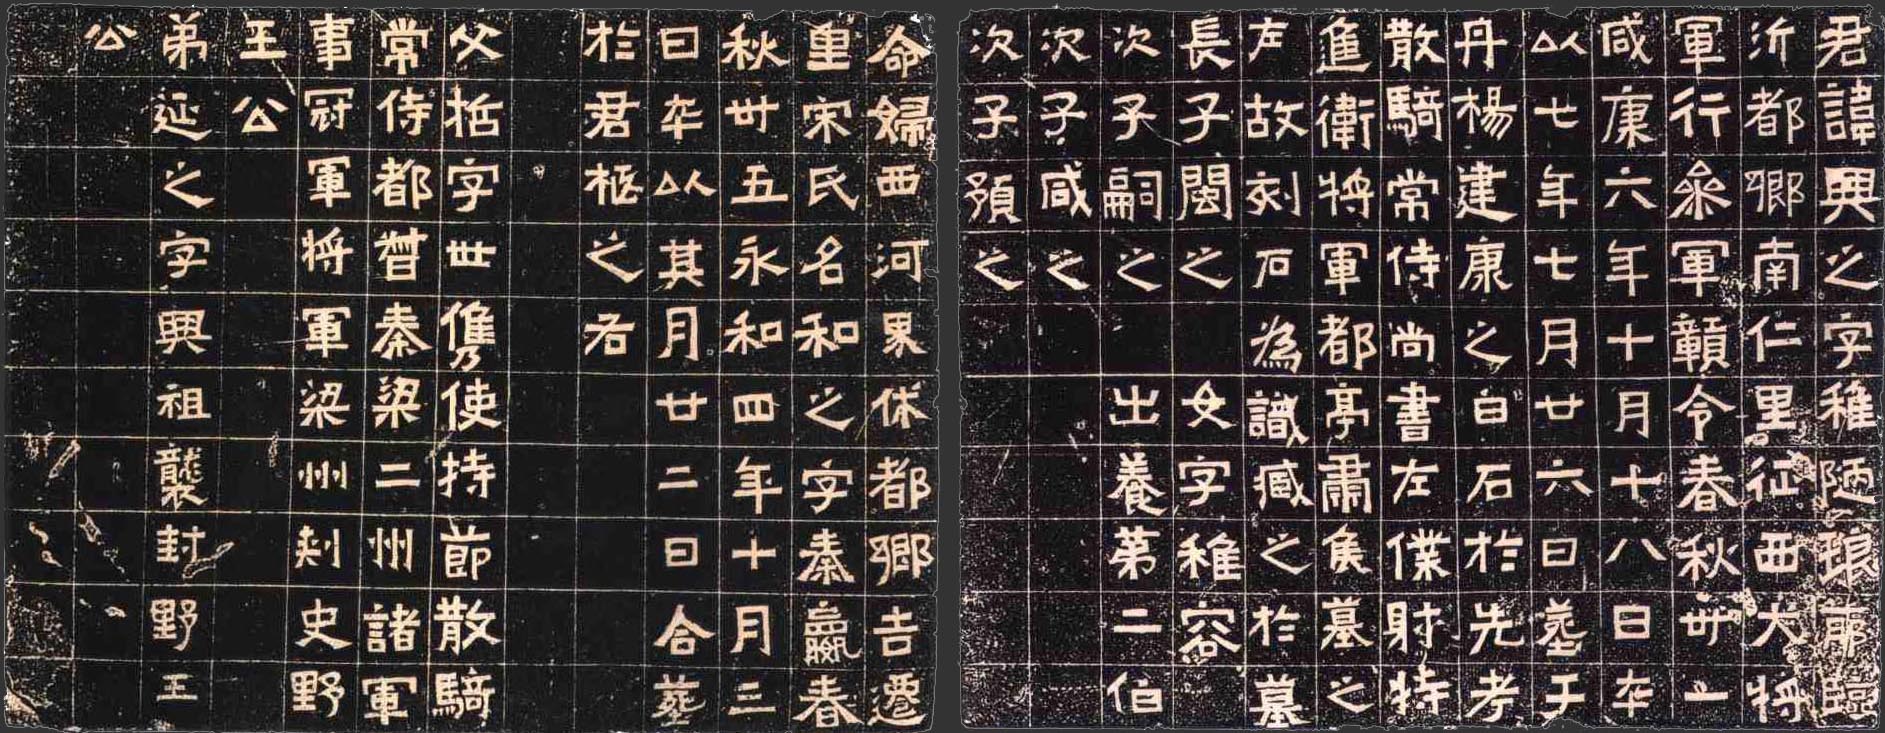 君諱興之字稚陋琅耶臨
沂都鄉南仁里征西大將
軍行叅軍贛令春秋卅一
咸康六年十月十八日卒
以七年七月廿六日塟于
丹楊建康之白石於先考
散騎常侍尚書左僕射特
進衛將軍都亭肅侯墓之
左故刻石為識臧之於墓
長子閩之女字稚容
次子嗣之出養第二伯
次子咸之
次子預之
命婦西河界休都鄉吉遷
里宋氏名和之字秦嬴春
秋卅五永和四年十月三
日卒以其月廿二日合塟
於君柩之右
父哲字世儁使持節散騎
常侍都督秦梁二州諸軍
事冠軍將軍梁州刺史野
王公
弟延之字興祖襲封野王
公